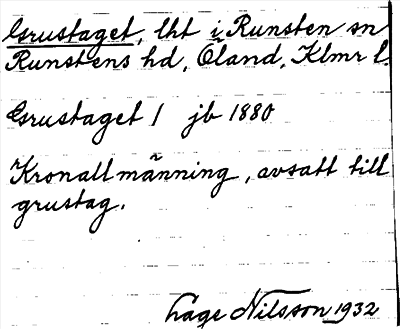 Grustaget, lht i Runsten sn
Runstens hd, Öland, Klmr l.
Grustaget 1 jb 1880
Kronallmänning, avsatt till
grustag.
Lage Nilsson 1932